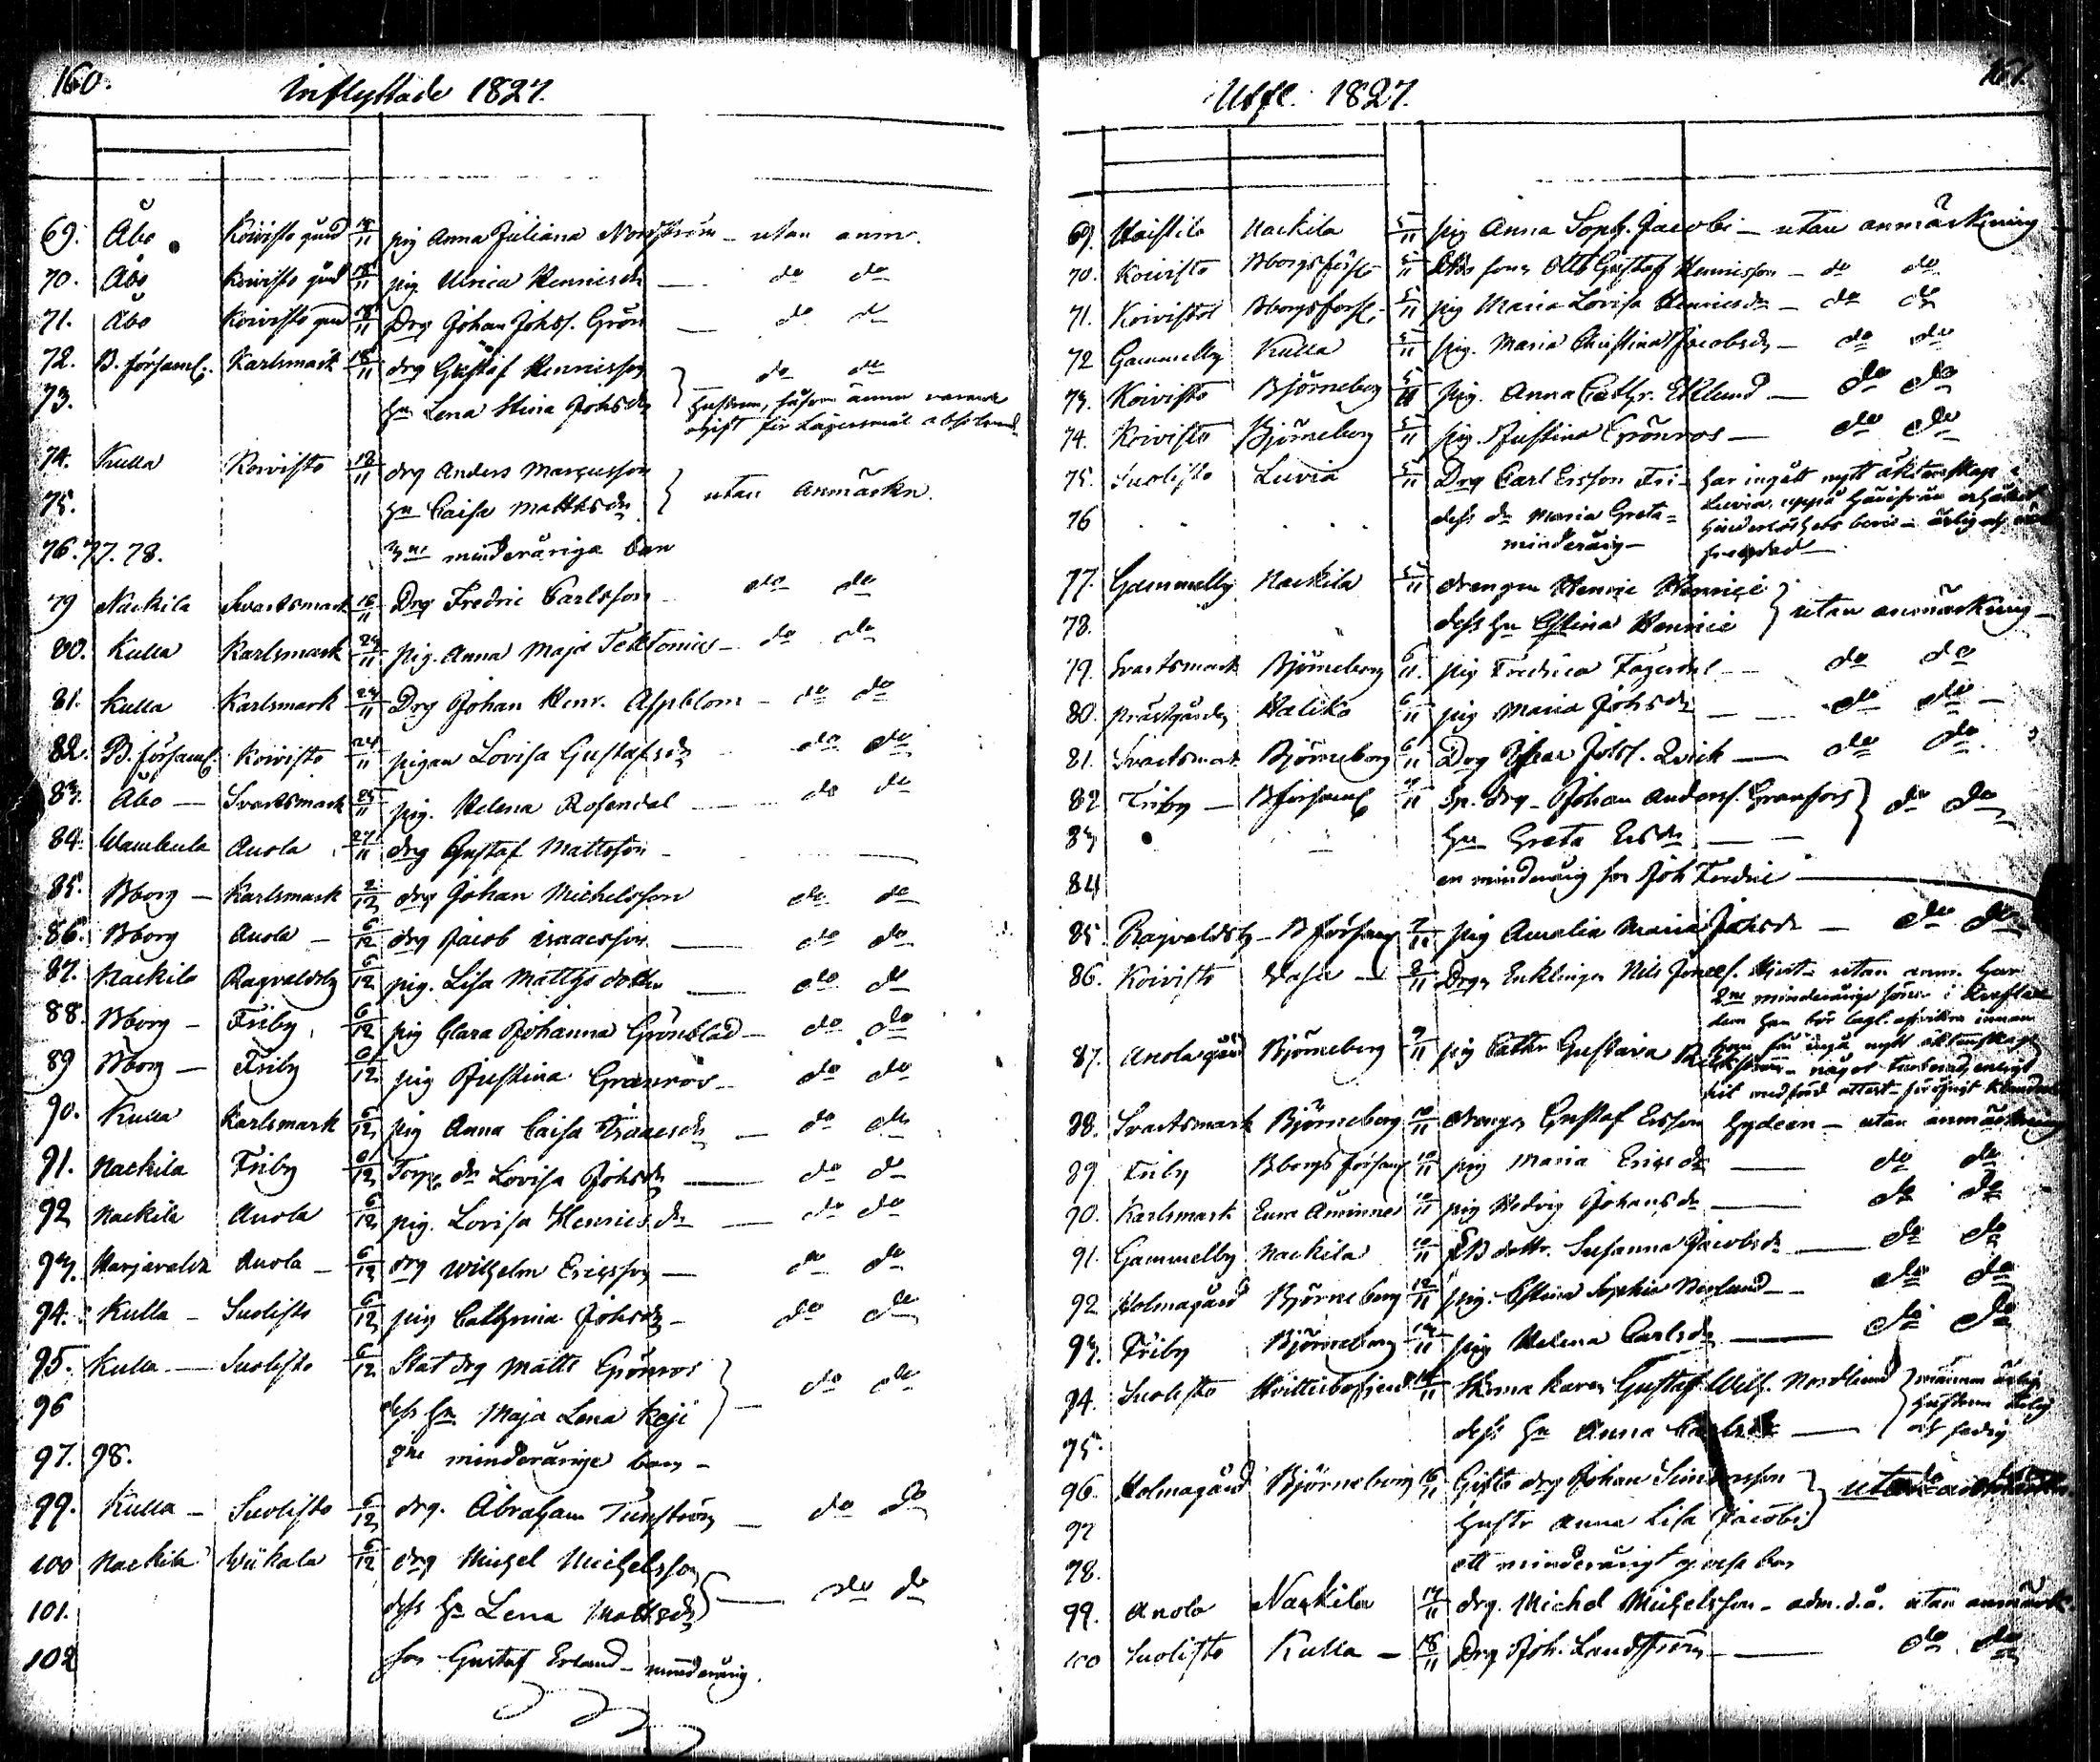 160.
Inflyttade 1827.
69. Åbo Koivisto gård 18/11 pig Anna Juliana Norrström - utan anm.
70. Åbo Koivisto gård 18/11 pig Ulrica Henricsdr — do do
71. Åbo Koivisto gård 18/11 Drg Johan Johss. Grön — do do
72. B. församl. Karlsmark 18/11 drg Gustaf Henricsson do do
73. hu Lena Stina Johsdr } hustrun, såsom ännu varande
ogift för Lägersmål absolverad
74. Kulla Koivisto 18/11 drg Anders Marcusson
75. hu Caisa Mattsdr } utan Anmärkn.
76. 77. 78. 3ne minderåriga barn
79 Nackila Svartsmark 18/11 Drg Fredric Carlsson do do
80. Kulla Karlsmark 24/11 pig. Anna Maja Tektonius - do do
81. Kulla Karlsmark 24/11 Drg Johan Henr. Aspblom - do do
82. B. församl. Koivisto 24/11 pigan Lovisa Gustafsdr do do
83. Åbo — Svartsmark 25/11 pig. Helena Rosendal — do do
84. Wambula Anola 27/11 drg Gustaf Mattsson -
85. Bborg — Karlsmark 2/12 drg Johan Michelsson do do
86. Bborg Anola — 6/12 drg Jacob Isaacsson — do do
87. Nackila Ragvaldsby 6/12 pig. Lisa Matths dotter — do do
88. Bborg — Friby 6/12 pig Clara Johanna Grönblad — do do
89 Bborg — Friby 6/12 pig Justina Granroos — do do
90. Kulla Karlsmark 6/12 pig Anna Caisa Isaacsdr — do do
91. Nackila Friby 6/12 Torp. dr Lovisa Johsdr — do do
92 Nackila Anola 6/12 pig. Lovisa Henricsdr — do do
93. Harjavalda Anola — 6/12 drg Wilhelm Ericsson — do do
94. Kulla — Suolisto 6/12 pig Cathrina Johsdr — do do
95. Kulla — Suolisto 6/12 Stat drg Matts Grönroos
96 dess hu Maja Lena Keji } — do do
97. 98. 2ne minderårige barn -
99. Kulla — Suolisto 6/12 drg. Abraham Tunström — do do
100 Nackila Wiikala 6/12 drg Michel Michelsson
101. dess hu Lena Mattsdr } — do do
102 son Gustaf Erland - minderårig.
161.
Utfl. 1827.
69. Haistila Nackila 5/11 pig Anna Soph. Jacobi — utan anmärkning
70. Koivisto Bborgs förs. 5/11 son Otto Gustaf Henricsson — do do
71. Koivisto Bborgs förs. 5/11 pig Maria Lovisa Henricsdr — do do
72 Gammelby Kulla 5/11 pig. Maria Christina Jacobsdr — do do
73. Koivisto Björneborg 5/11 pig. Anna Cathr. Eklund — do do
74. Koivisto Björneborg 5/11 pig. Justina Grönroos — do do
75. Suolisto Luvia 5/11 Drg Carl Ersson Fri- har ingått nytt äktenskap i
Luvia, uppå härifrån erhållet
76 dess dr Maria Greta - hinderlöshets bevis — ärlig
minderårig — frejdad
77. Gammelby Nackila 5/11 drengen Henric Henrici
78. dess hu Cstina Henrici } utan anmärkning —
79. Svartsmark Björneborg 6/11 pig Fredrica Fagerdal — do do
80. Prästgården Haliko 6/11 pig Maria Johsdr — do do —
81. Svartsmark Björneborg 6/11 Drg Johss. Qvick — do do
82 Friby — B församl 7/11 Sp. drg. Johan Anderss. Granfors
83 hu Greta Ersdr — } do do
84 en minderårig son Joh Fredric —
85. Ragvaldsby — B församl 7/11 pig Amalia Maria Johsdr — do do
86. Koivisto Vasa — 8/11 Drgn Enklingen Nils Hjort - utan anm. har
2ne minderårige söner i
dem han bör lagl. afvittra innan
87. Anola gård Björneborg 9/11 pig Cathr Gustava han får ingå nytt äktenskap
något enligt
hit medförd attest —
88. Svartsmark Björneborg 10/11 drengen Gustaf Ersson Hydeen — utan anmärkning
89. Friby Bborgs församl 10/11 pig Maria Ericsdr — do do
90. Karlsmark Eura Åminne 10/11 pig Hedvig Johansdr — do do
91. Gammelby Nackila 10/11 dottr. Susanna Jacobsdr — do do
92 Holmagård Björneborg 12/11 pig. Cstina Sophia Norlund — do do
93. Friby Björneborg 14/11 pig Helena Carlsdr — do do
94. Suolisto Hvittisbofjerd 14/11 Skomakaren Gustaf Wilh. Nordlund } mannen ärlig
95. dess hu Anna Carlsdr — hustrun
96. Holmagård Björneborg 16/11 Gifte drg Johan Simonsson
97 hustr Anna Lisa Jacobi }
98. ett minderårigt barn
99. Anola Nackila 17/11 drg. Michel Michelsson - adm. d. å. utan anmärk.
100 Suolisto Kulla — 18/11 Drg Joh. Landström — do do